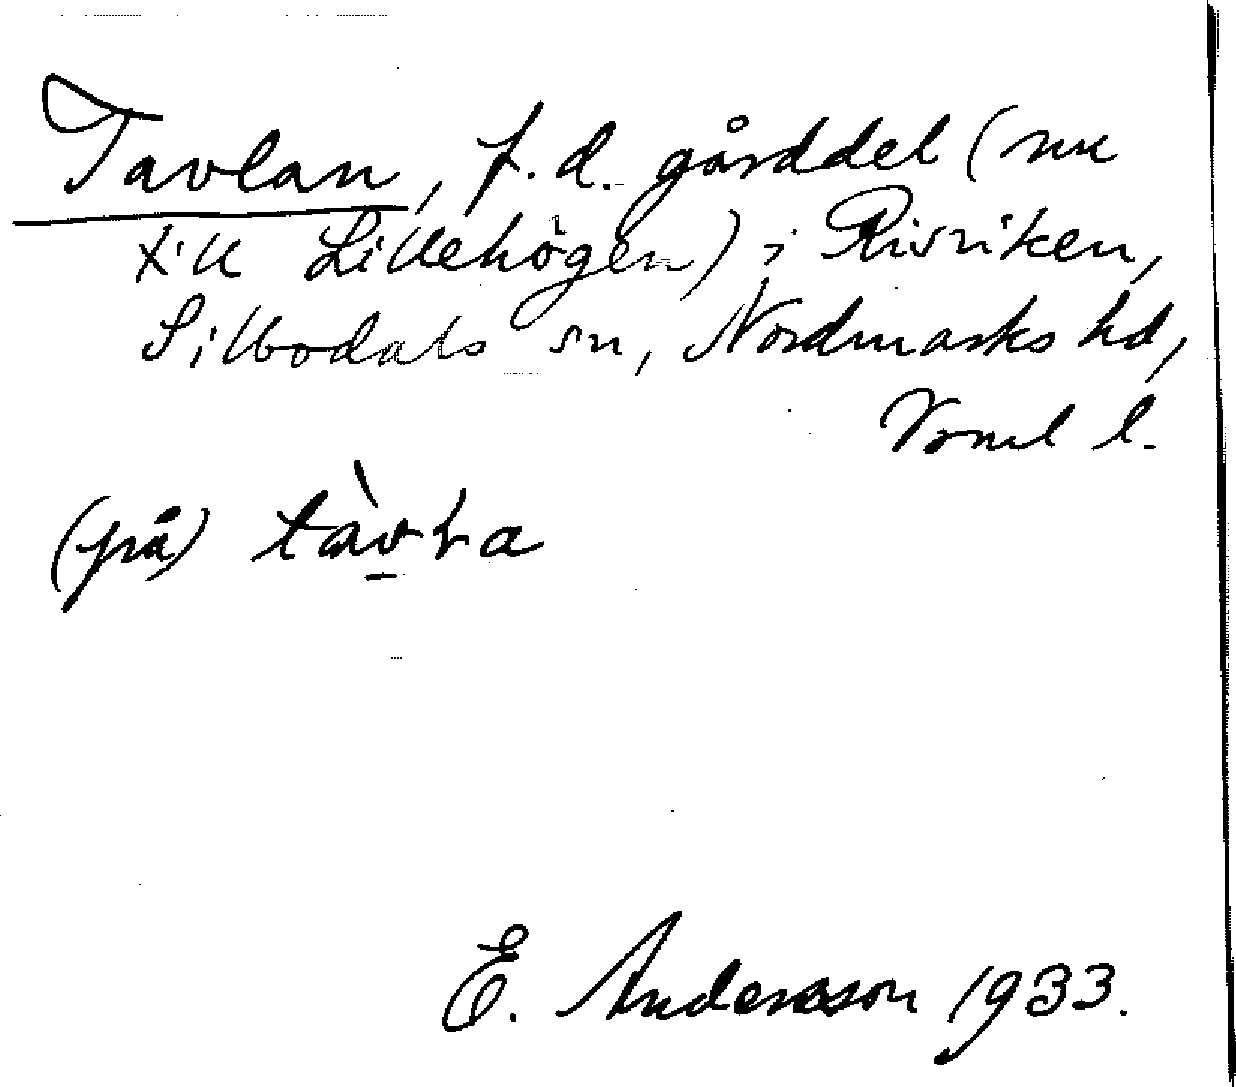 Tavlan, f.d. gårddel (nu
till Lillehögen) i Risviken,
Silbodals sn, Nordmarks hd,
Vrml l.
(på) tàvɫa
E. Andersson 1933.